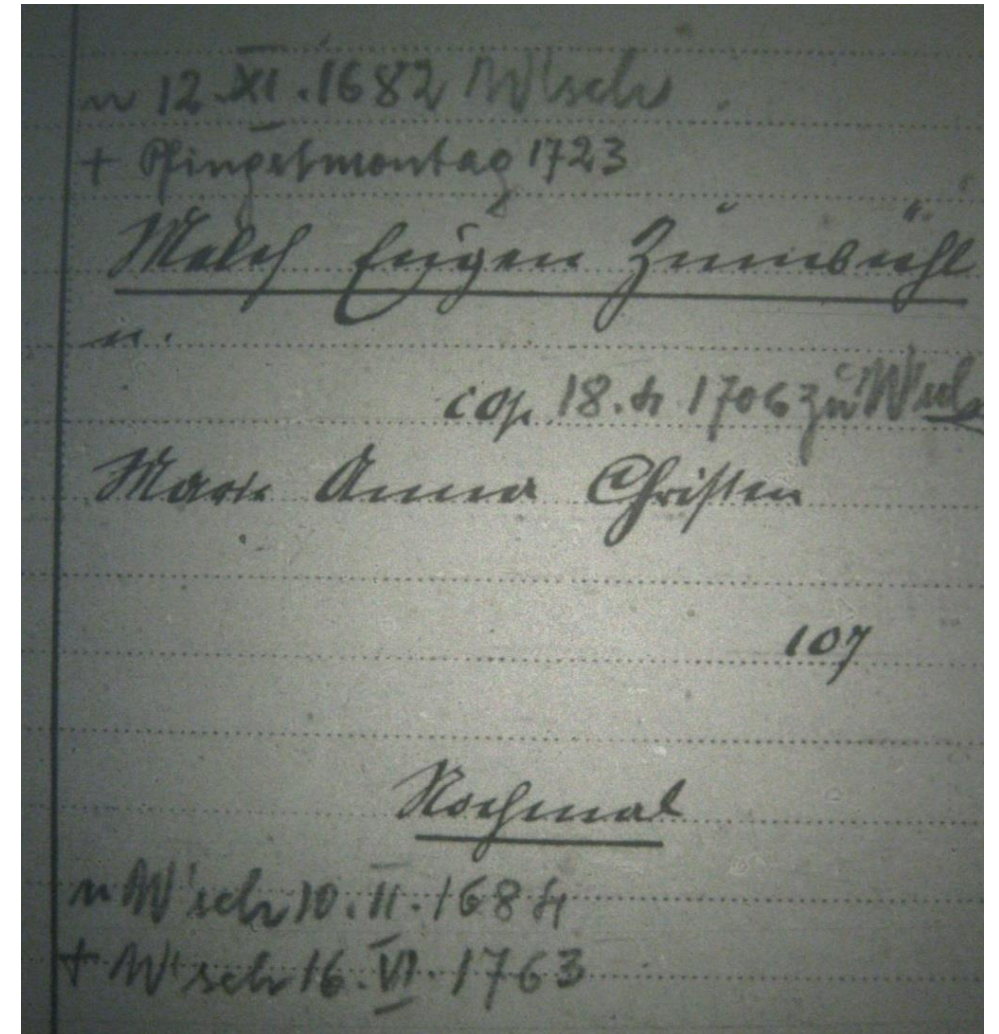 ~ 12.XI.1682 W'sch.
+ Pfingstmontag 1723
Melch Eugen Zumbühl
u.
cop. 18.4 1706 zu W'sch
Marie Anna Christen
107
Nochmal
~ W'sch 10.II.1684
+ W'sch 16.VI.1763